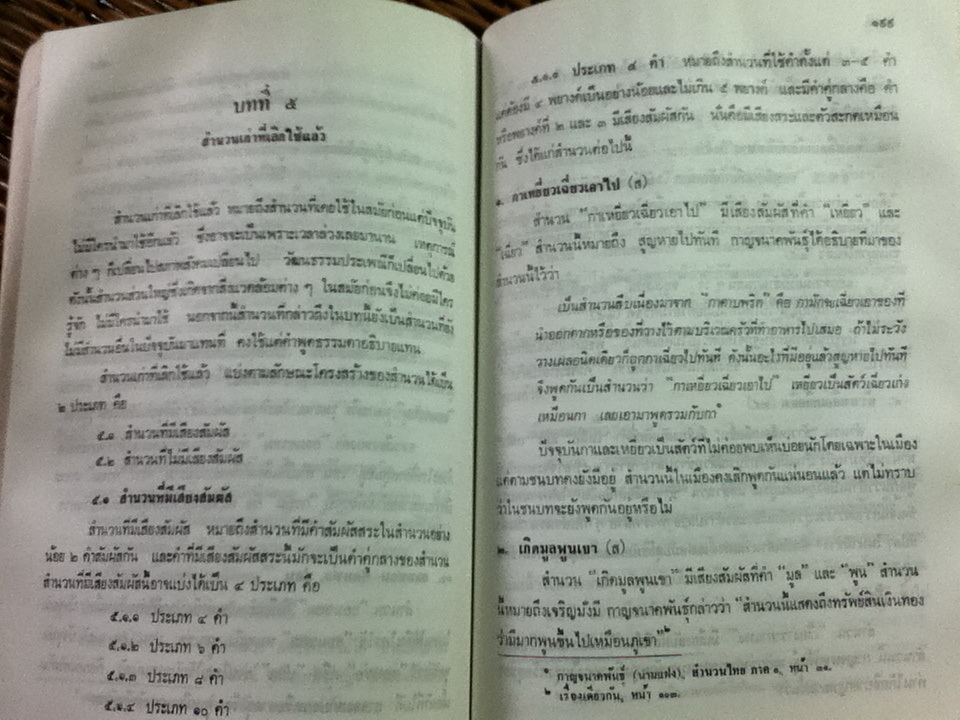 บทที่ ๕
สำนวนเก่าที่เลิกใช้แล้ว
สำนวนเก่าที่เลิกใช้แล้ว หมายถึงสำนวนที่เคยใช้ในสมัยก่อนแต่ปัจจุบัน
ไม่มีใครนำมาใช้อีกแล้ว ซึ่งอาจจะเป็นเพราะเวลาล่วงเลยมานาน เหตุการณ์
ต่าง ๆ ก็เปลี่ยนไปสภาพสังคมเปลี่ยนไป วัฒนธรรมประเพณีก็เปลี่ยนไปด้วย
ดังนั้นสำนวนส่วนใหญ่ซึ่งเกิดจากสิ่งแวดล้อมต่าง ๆ ในสมัยก่อนจึงไม่ค่อยมีใคร
รู้จัก ไม่มีใครนำมาใช้ นอกจากนี้สำนวนที่กล่าวถึงในบทนี้ยังเป็นสำนวนที่ยัง
ไม่มีสำนวนอื่นในปัจจุบันมาแทนที่ คงใช้แต่คำพูดธรรมดาอธิบายแทน
สำนวนเก่าที่เลิกใช้แล้ว แบ่งตามลักษณะโครงสร้างของสำนวนได้เป็น
๒ ประเภท คือ
๕.๑ สำนวนที่มีเสียงสัมผัส
๕.๒ สำนวนที่ไม่มีเสียงสัมผัส
๕.๑ สำนวนที่มีเสียงสัมผัส
สำนวนที่มีเสียงสัมผัส หมายถึงสำนวนที่มีคำสัมผัสสระในสำนวนอย่าง
น้อย ๒ คำสัมผัสกัน และคำที่มีเสียงสัมผัสสระนี้มักจะเป็นคำคู่กลางของสำนวน
สำนวนที่มีเสียงสัมผัสนี้อาจแบ่งได้เป็น ๔ ประเภท คือ
๕.๑.๑ ประเภท ๔ คำ
๕.๑.๒ ประเภท ๖ คำ
๕.๑.๓ ประเภท ๘ คำ
๕.๑.๔ ประเภท ๑๐ คำ
๑๙๙
๕.๑.๑ ประเภท ๔ คำ หมายถึงสำนวนที่ใช้คำตั้งแต่ ๓-๕ คำ
แต่ต้องมี ๔ พยางค์เป็นอย่างน้อยและไม่เกิน ๕ พยางค์ และมีคำคู่กลางคือ คำ
หรือพยางค์ที่ ๒ และ ๓ มีเสียงสัมผัสกัน นั่นคือมีเสียงสระและตัวสะกดเหมือน
กัน ซึ่งได้แก่สำนวนต่อไปนี้
๑. กาเหยี่ยวเฉี่ยวเอาไป (ส)
สำนวน "กาเหยี่ยวเฉี่ยวเอาไป" มีเสียงสัมผัสที่คำ "เหยี่ยว" และ
"เฉี่ยว" สำนวนนี้หมายถึง สูญหายไปทันที กาญจนาคพันธุ์ได้อธิบายที่มาของ
สำนวนนี้ไว้ว่า
เป็นสำนวนสืบเนื่องมาจาก "กาคาบพริก" คือ กามักจะเฉี่ยวเอาของที่
นำออกตากหรือของที่วางไว้ตามบริเวณครัวที่ทำอาหารไปเสมอ ถ้าไม่ระวัง
วางเผลอนิดเดียวก็ถูกกาเฉี่ยวไปทันที ดังนั้นอะไรที่มีอยู่แล้วสูญหายไปทันที
จึงพูดกันเป็นสำนวนว่า "กาเหยี่ยวเฉี่ยวเอาไป" เหยี่ยวเป็นสัตว์เฉี่ยวเก่ง
เหมือนกา เลยเอามาพูดรวมกับกา๑
ปัจจุบันกาและเหยี่ยวเป็นสัตว์ที่ไม่ค่อยพบเห็นบ่อยนักโดยเฉพาะในเมือง
แต่ตามชนบทคงยังมีอยู่ สำนวนนี้ในเมืองคงเลิกพูดกันแน่นอนแล้ว แต่ไม่ทราบ
ว่าในชนบทจะยังพูดกันอยู่หรือไม่
๒. เกิดมูลพูนเขา (ส)
สำนวน "เกิดมูลพูนเขา" มีเสียงสัมผัสที่คำ "มูล" และ "พูน" สำนวน
นี้หมายถึงเจริญมั่งมี กาญจนาคพันธุ์กล่าวว่า "สำนวนนี้แสดงถึงทรัพย์สินเงินทอง
ว่ามีมากพูนขึ้นไปเหมือนภูเขา"๒
๑ กาญจนาคพันธุ์ (นามแฝง), สำนวนไทย ภาค ๑, หน้า
๒ เรื่องเดียวกัน, หน้า ๑๑๓.